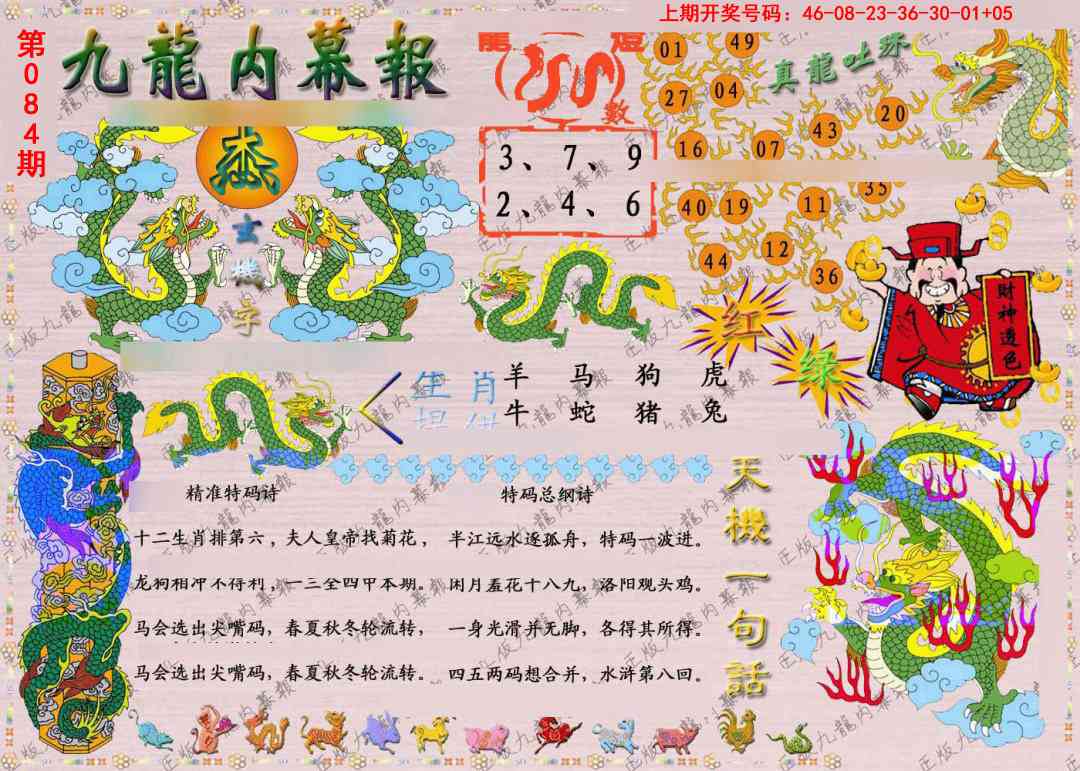 上期开奖号码：46-08-23-36-30-01+05
第084期
九龍内幕報
龍燈
数
3、7、9
2、4、6
真龍吐珠
01 49
27 04
43 20
16 07
40 19 11 35
44 12 36
玄
機
字
红
绿
財神透色
生肖 羊 马 狗 虎
牛 蛇 猪 兔
精准特码诗
十二生肖排第六，夫人皇帝找菊花，
龙狗相冲不得利，一三全四甲本期。
马会选出尖嘴码，春夏秋冬轮流转，
马会选出尖嘴码，春夏秋冬轮流转。
特码总纲诗
半江远水逐孤舟，特码一波进。
闲月羞花十八九，洛阳观头鸡。
一身光滑并无脚，各得其所得。
四五两码想合并，水浒第八回。
天機一句話
正版九龍内幕報